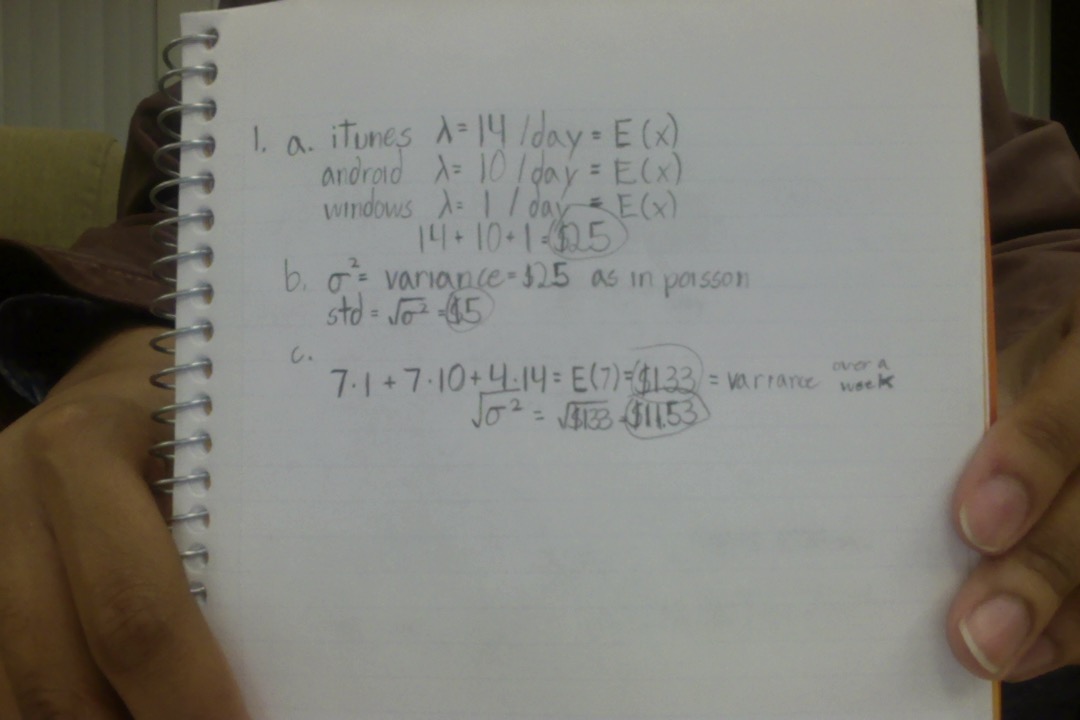 1. a. itunes λ = 14 /day = E(x)
android λ = 10 /day = E(x)
windows λ = 1 / day = E(x)
14 + 10 + 1 = $25
b. σ² = variance = $25 as in poisson
std = √σ² = $5
c.
7·1 + 7·10 + 4·14 = E(7) = $133 = variance over a week
√σ² = √$133 = $11.53